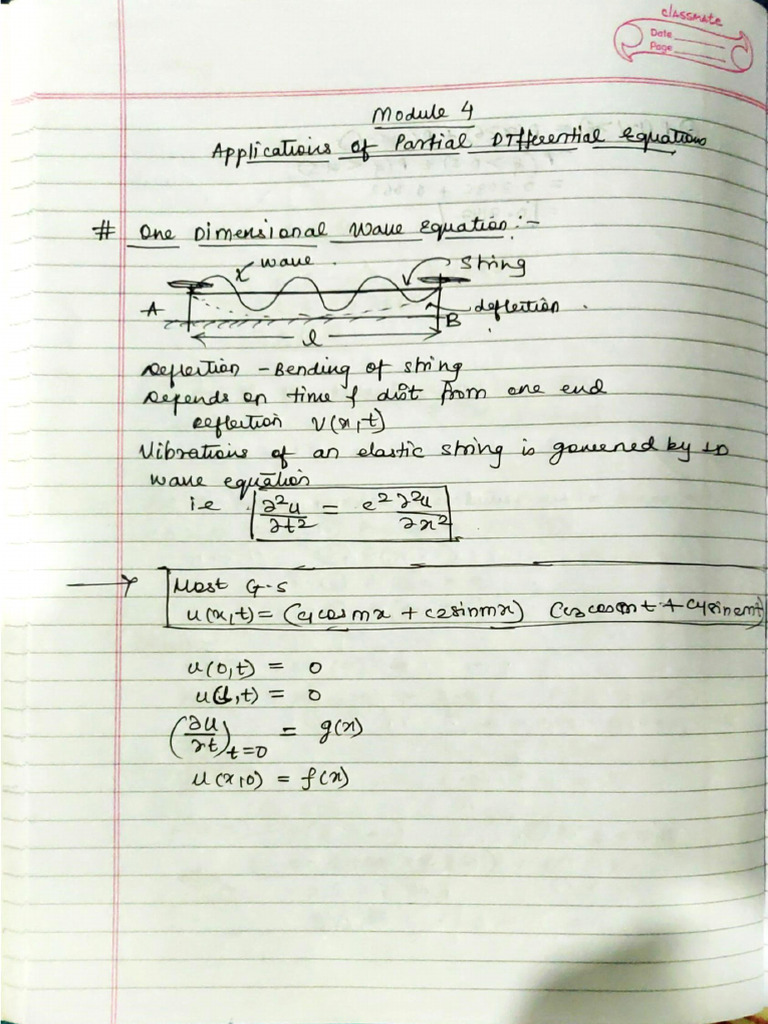 classmate
Date
Page
Module 4
Applications of Partial Differential Equations
# One Dimensional Wave Equation :-
wave
String
A
B
deflection
l
Deflection - Bending of string
Depends on time & dist from one end
deflection V(x,t)
Vibrations of an elastic string is governed by 1D
wave equation
i.e ∂²u/∂t² = c² ∂²u/∂x²
Most G.S
u(x,t) = (c1cosmx + c2sinmx) (c3coscmt + c4sincmt)
u(0,t) = 0
u(l,t) = 0
(∂u/∂t)t=0 = g(x)
u(x,0) = f(x)